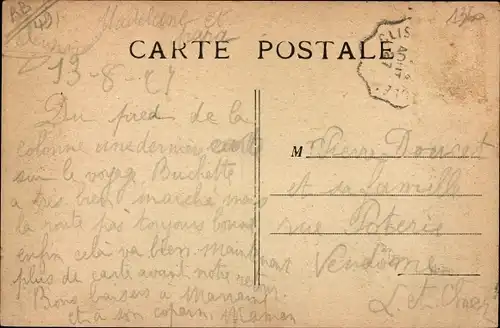 Madeleine et
CARTE POSTALE
13-8-27
Du pied de la
colonne une dernière carte
sur le voyage Buchette
a très bien marché mais
la route pas toujours bonne
enfin celà va bien. Maintenant
plus de carte avant notre
Bons baisers à
et à son copain. Maman
M Pierre
et sa famille
rue Poterie
Vendôme
L et Cher